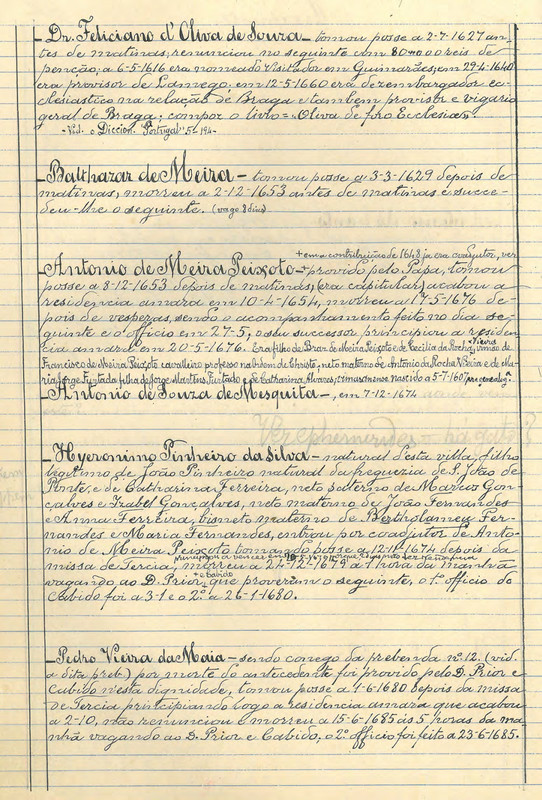 - Dr. Feliciano d'Oliva de Souza - tomou posse a 2-7-1627 an-
tes de matinas; renunciou no seguinte com 80#000 reis de
penção, a 6-5-1616 era nomeado Visitador em Guimarães; em 29-4-1640
era provisor de Lamego; em 12-5-1660 era dezembargador ec-
clesiastico na relação de Braga e tambem provisor e vigario
geral de Braga; compoz o livro = Oliva de foro Ecclesiæ.
- Vid. o Diccion. "Portugal" 5º 194-
- Balthazar de Meira - tomou posse a 3-3-1629 depois de
matinas, morreu a 2-12-1653 antes de matinas e succe-
deu-lhe o seguinte. (vago 8 dias)
+ em a contribuição de 1648 ja era coadjutor, ver
- Antonio de Meira Peixoto + provido pelo Papa, tomou
posse a 8-12-1653 depois de matinas, (era capitular) acabou a
residencia amara em 10-4-1654, morreu a 17-5-1676 de-
pois de vesperas, sendo o acompanhamento feito no dia se-
guinte e o officio em 27-5; o seu successor principiou a residen-
cia amara em 20-5-1676. Era filho de Braz de Meira Peixoto e de Cecilia da Rocha Vieira, irmão de
Francisco de Meira Peixoto cavalleiro professo na Ordem de Christo, neto materno de Antonio da Rocha Vieira e de Ma-
ria Jorge Furtada filha de Jorge Martins Furtado e de Catharina Alvares, nascido a 5-7-1607
- Antonio de Souza de Mesquita -, em 7-12-1674
- Hyeronimo Pinheiro da Silva - natural d'esta villa, filho
legitimo de João Pinheiro natural da freguezia de S. João de
Ponte, e de Catharina Ferreira, neto paterno de Marcos Gon-
çalves e Izabel Gonçalves, neto materno de João Fernandes
e Anna Ferreira, bisneto materno de Bertholameu Fer-
nandes e Maria Fernandes, entrou por coadjutor de Anto-
nio de Meira Peixoto tomando posse a 12-11-1674 depois da
missa de Tercia, morreu a 24-12-1679 á 1 hora da manhã
vagando ao D. Prior, e Cabido que proveram o seguinte, o 1º officio do
Cabido foi a 3-1 e o 2º a 26-1-1680.
- Pedro Vieira da Maia - sendo conego da prebenda nº 12. (vid.
a dita preb.) por morte do antecedente foi provido pelo D. Prior e
Cabido n'esta dignidade, tomou posse a 1-6-1680 depois da missa
de Tercia principiando logo a residencia amara que acabou
a 2-10, não renunciou e morreu a 15-6-1685 ás 5 horas da ma-
nhã vagando ao D. Prior e Cabido, o 2º officio foi feito a 23-6-1685.